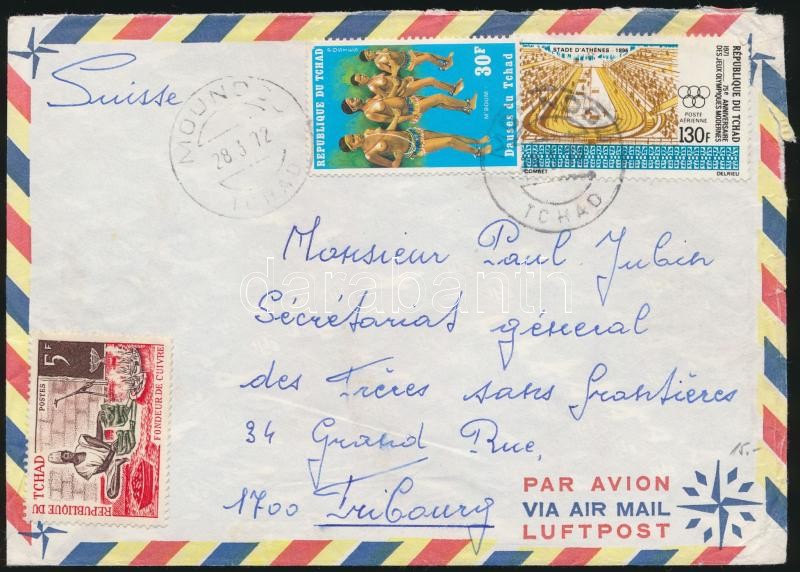 Suisse
MOUND
28.3.72
TCHAD
REPUBLIQUE DU TCHAD
POSTES
M'BOUM
30F
Danses du Tchad
STADE D'ATHÈNES - 1896
RÉPUBLIQUE DU TCHAD
1971 75e ANNIVERSAIRE
DES JEUX OLYMPIQUES MODERNES
POSTE
AÉRIENNE
130F
COMBET
DELRIEU
TCHAD
Monsieur Paul Jubin
Sécrétariat général
des Frères sans frontières
34 Grand Rue,
1700 Fribourg
darabanth
5F
POSTES
FONDEUR DE CUIVRE
REPUBLIQUE DU TCHAD
15.-
PAR AVION
VIA AIR MAIL
LUFTPOST